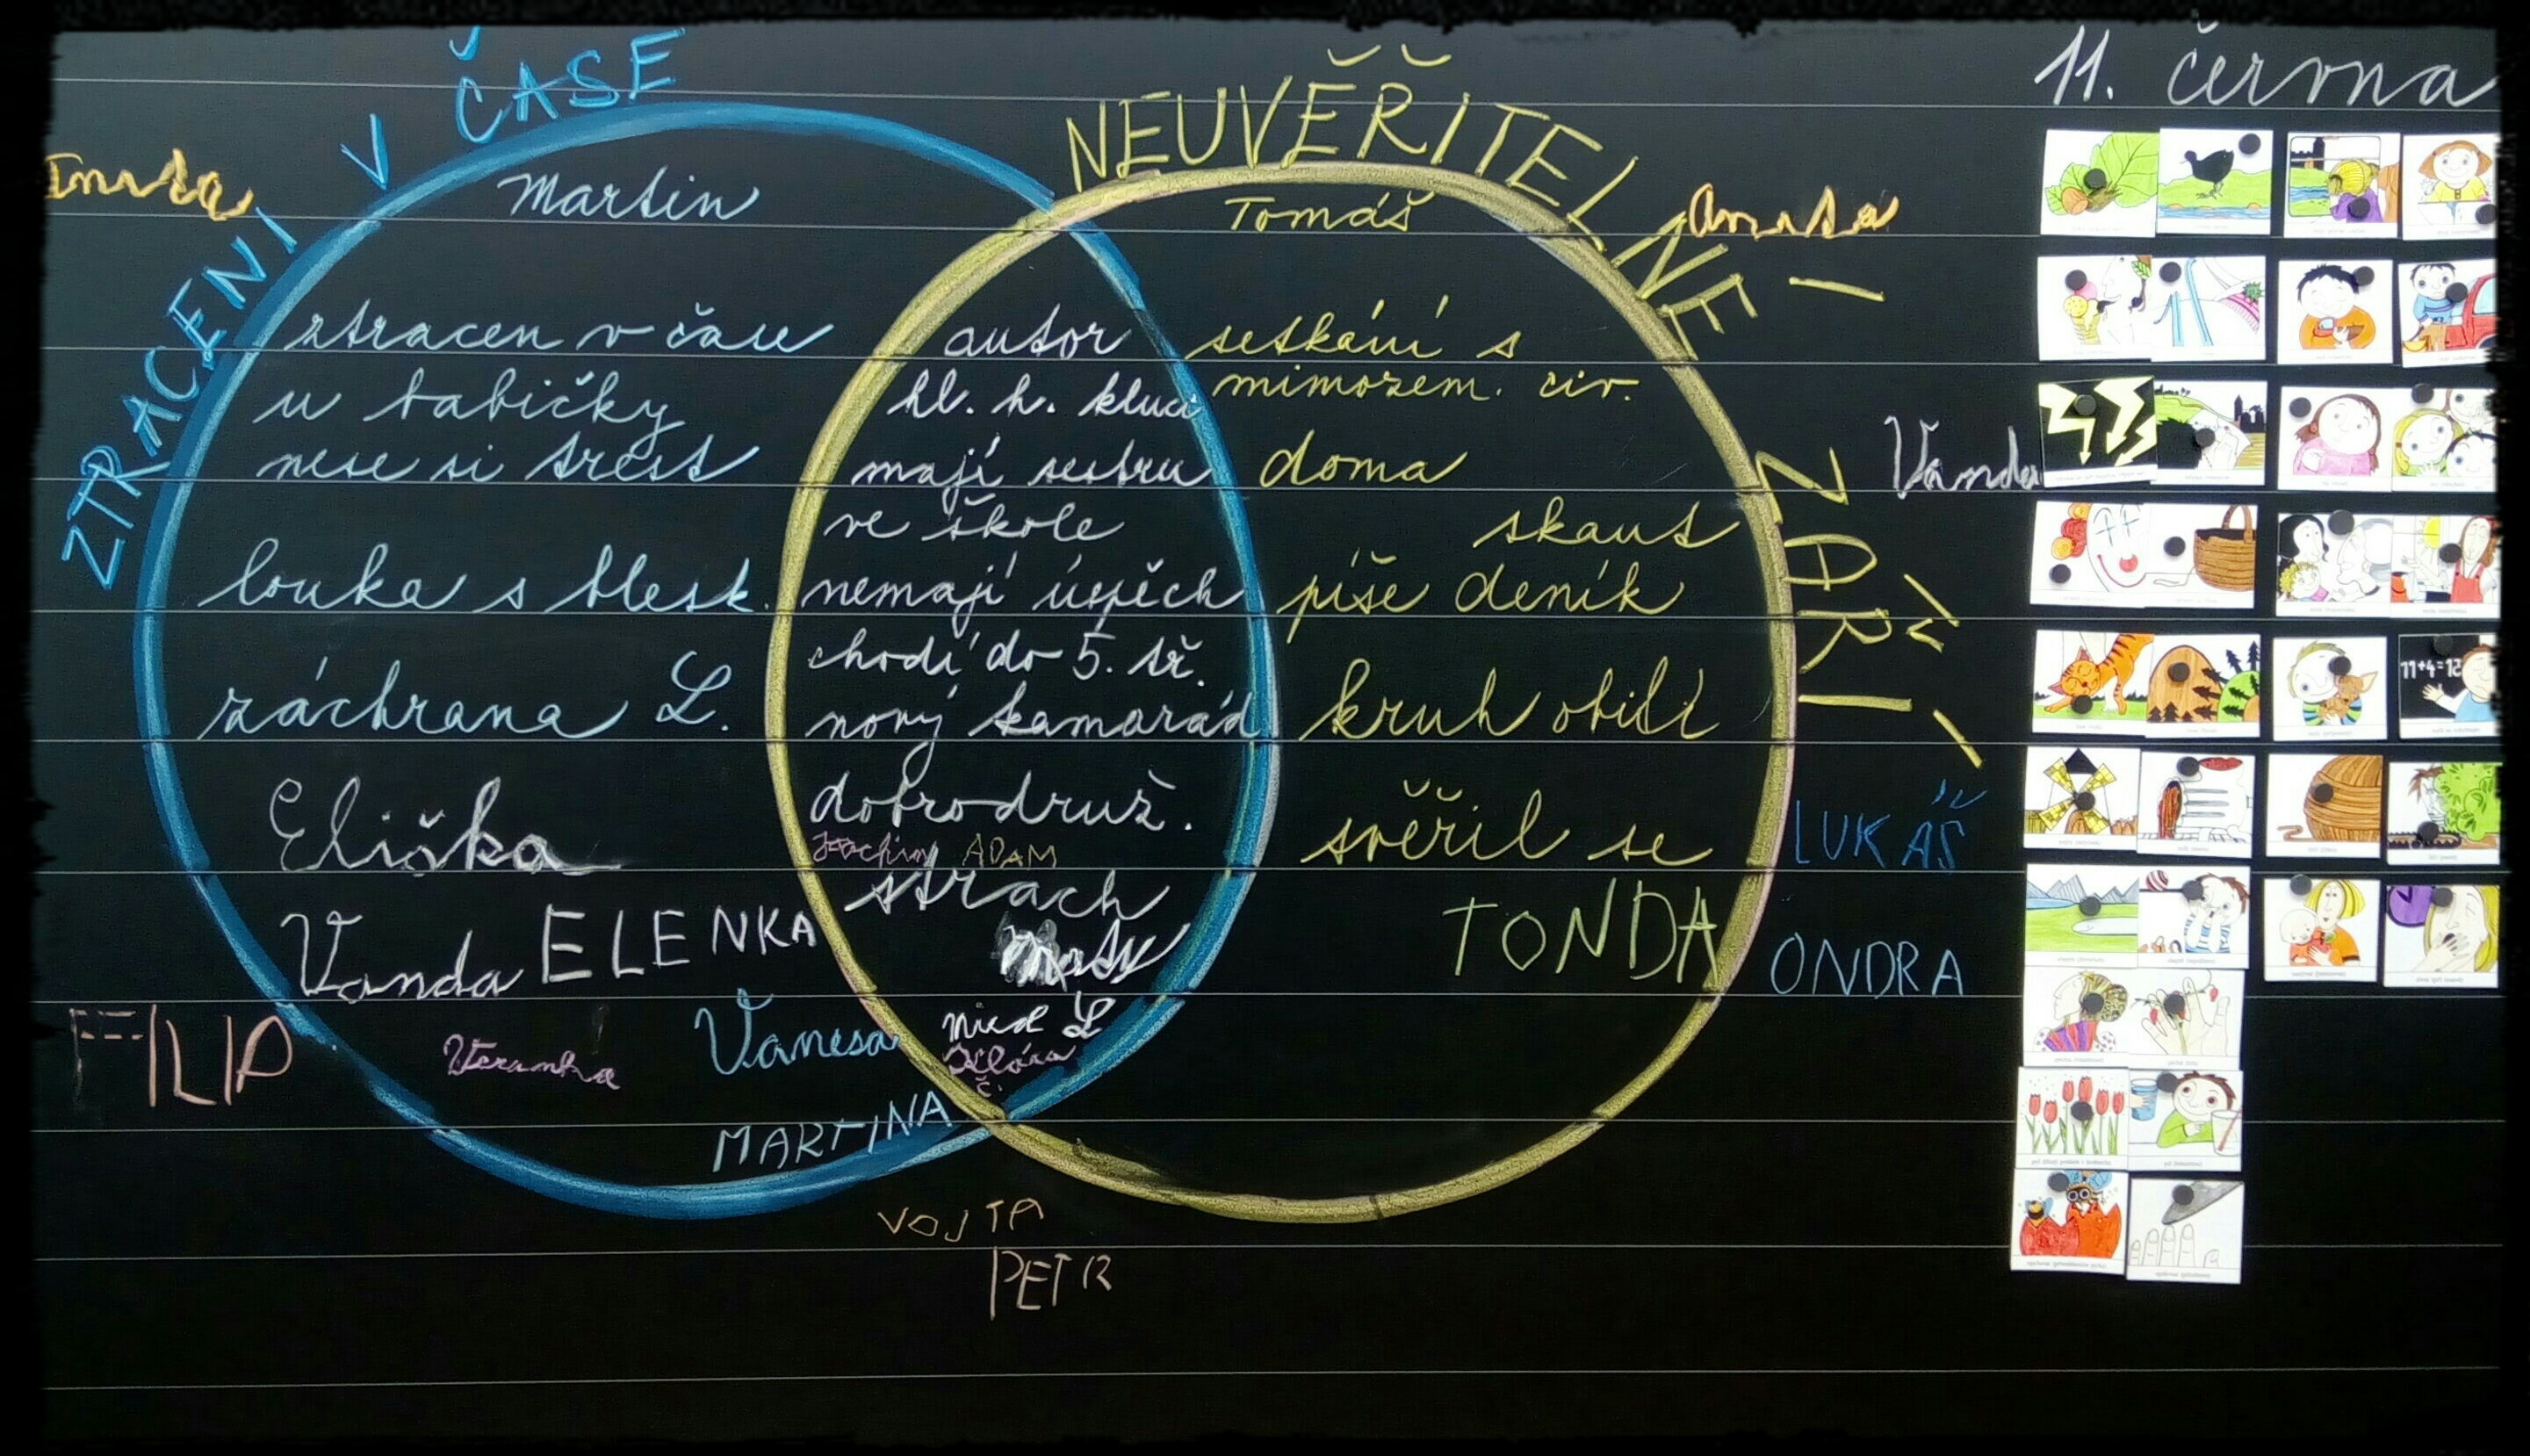 11. června
ZTRACENI V ČASE
NEUVĚŘITELNÉ ZÁŘÍ
Martin
Tomáš
ztracen v čase
u babičky
nese si trest
louka s blesk.
záchrana L.
Eliška
Vanda ELENKA
Vanesa
MARTINA
autor
hl. h. kluci
mají sestru
ve škole
nemají úspěch
chodí do 5. tř.
nový kamarád
dobrodruž.
ADAM
strach
Klára
Č.
setkání s
mimozem. civ.
doma
skaut
píše deník
kruh obilí
svěřil se
TONDA
Vanda
LUKÁŠ
ONDRA
FILIP
VOJTA
PETR
11+4=12